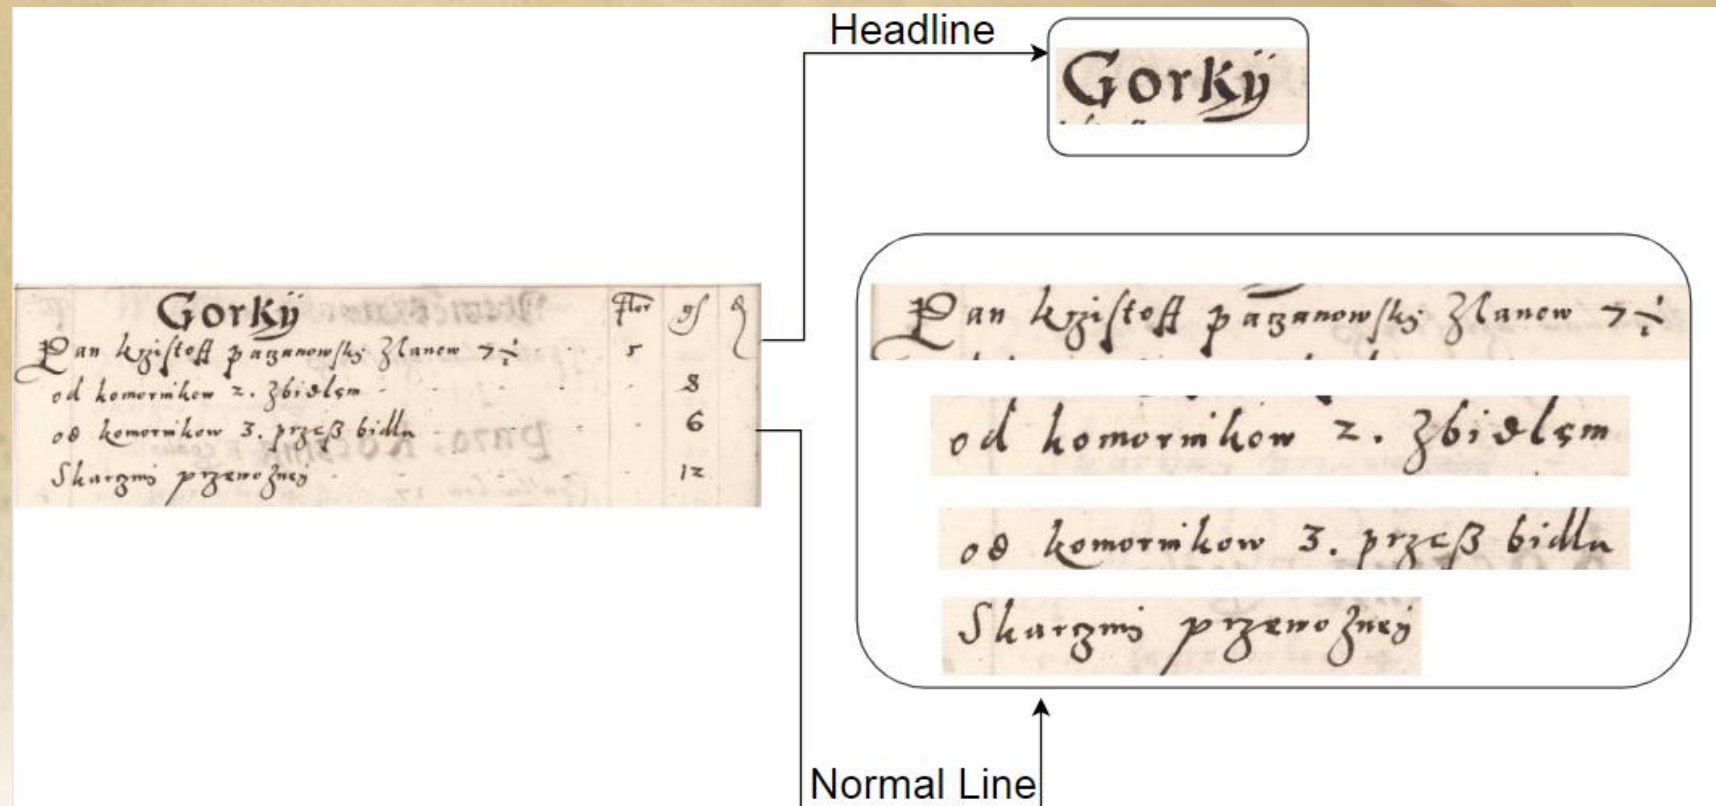 Headline
Gorkÿ
Gorkÿ flor gſ
Pan krziſtoff paczanowſky Zlanow 7 ÷ 5
od komornikow 2. Zbidlęm 8
od komornikow 3. przeß bidla 6
Skarczmy przewozney 12
Pan krziſtoff paczanowſky Zlanow 7 ÷
od komornikow 2. Zbidlęm
od komornikow 3. przeß bidla
Skarczmy przewozney
Normal Line